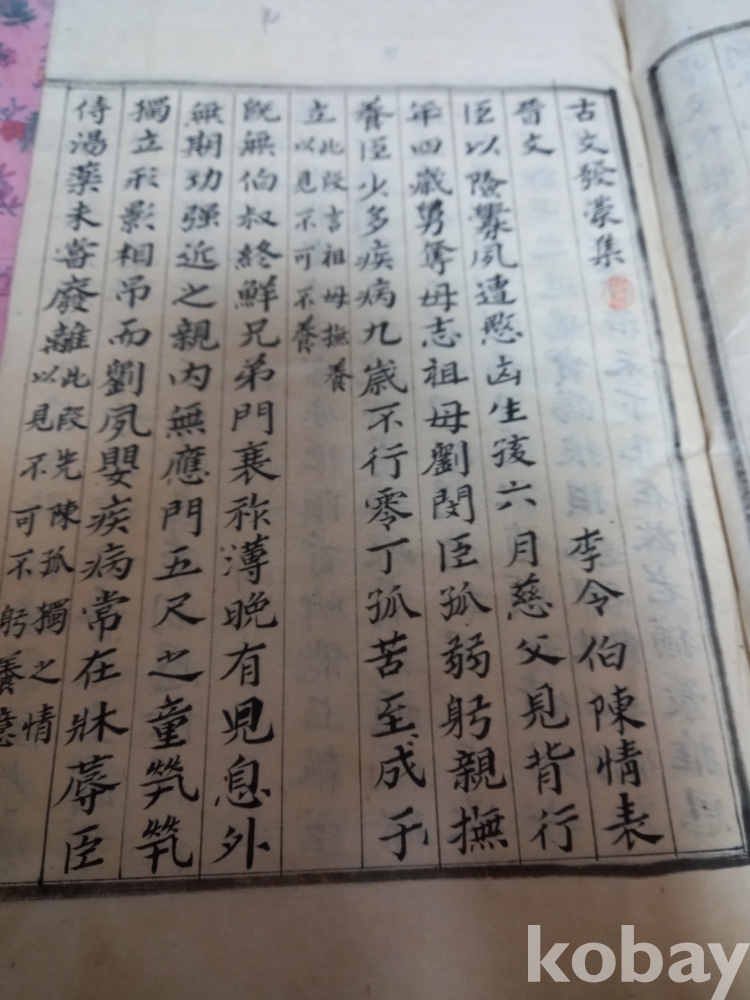 古文發蒙集 李令伯陳情表
晉文
臣以險釁夙遭愍凶生孩六月慈父見背行
年四歲舅奪母志祖母劉閔臣孤弱躬親撫
養臣少多疾病九歲不行零丁孤苦至成于
立此段言祖母撫養
以見不可不養
旣無伯叔終鮮兄弟門衰祚薄晩有兒息外
無期功强近之親內無應門五尺之童煢煢
獨立形影相吊而劉夙嬰疾病常在牀蓐臣
侍湯藥未嘗廢離此段先陳孤獨之情
以見不可不躬養意
kobay